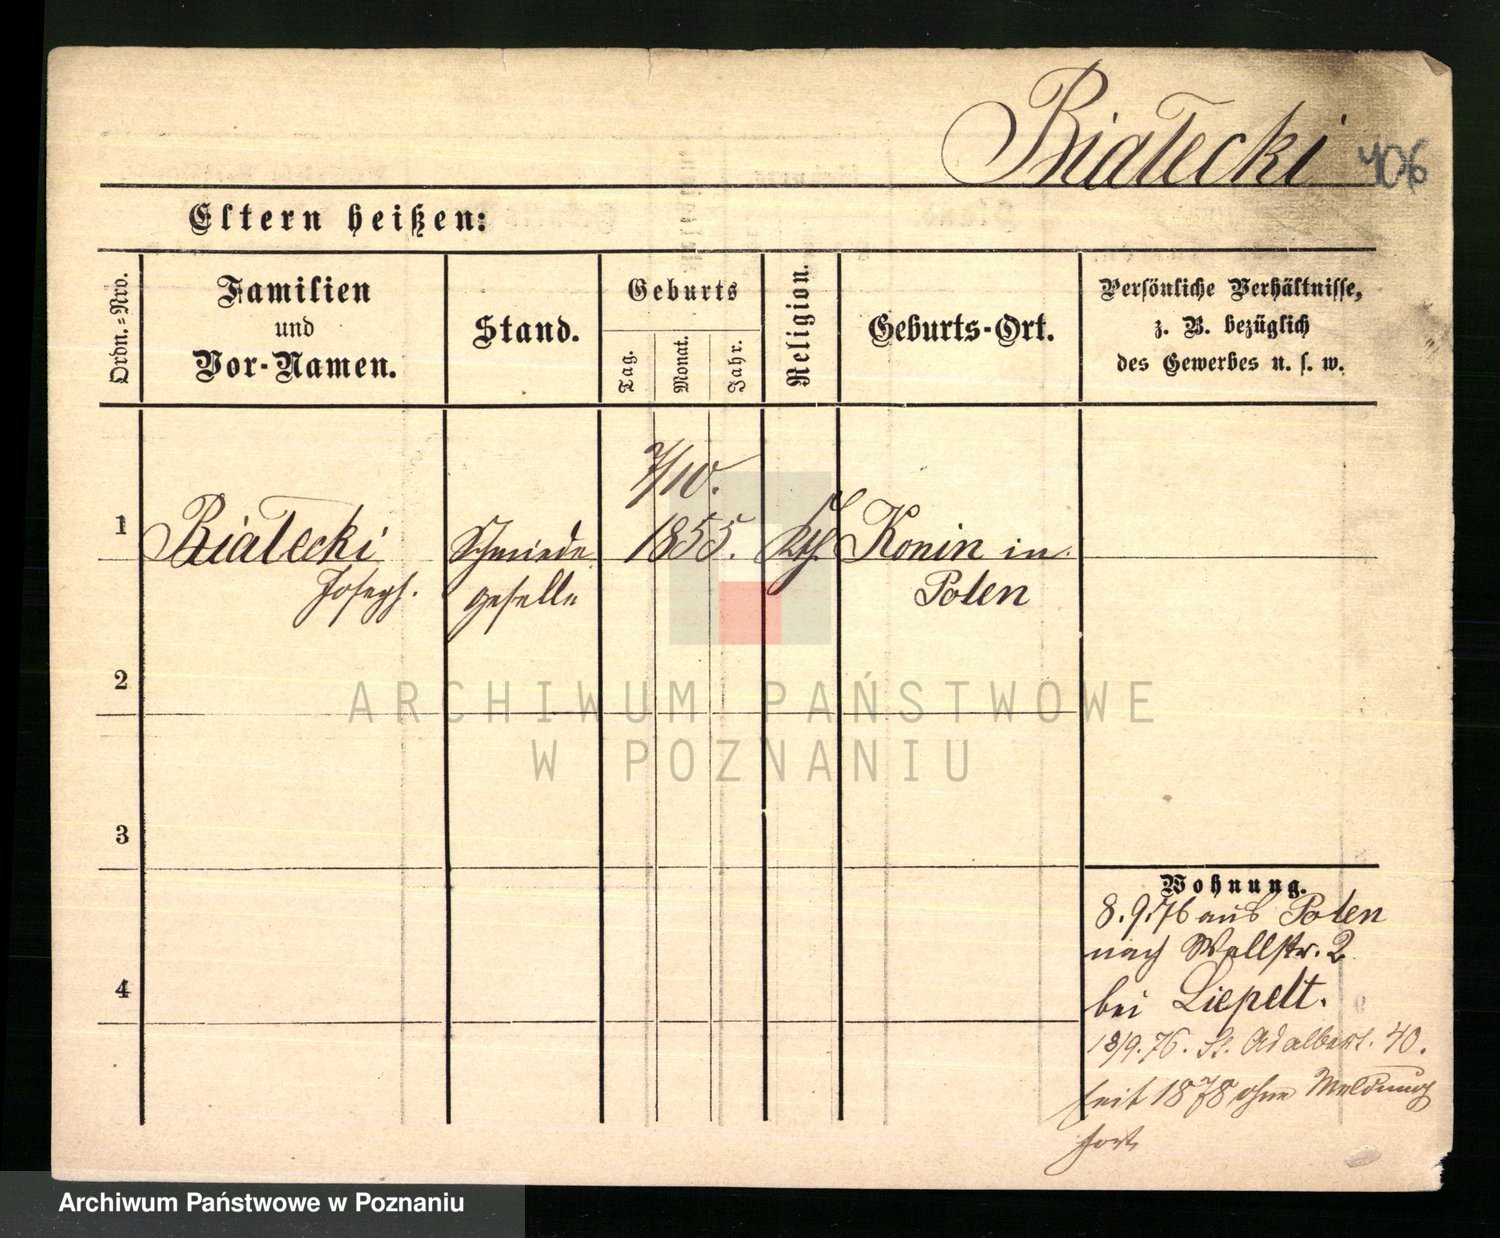 Białecki 406
Eltern heißen:
Ordn.=Nro.
Familien
und
Vor-Namen.
Stand.
Geburts
Tag.
Monat.
Jahr.
Religion.
Geburts-Ort.
Persönliche Verhältnisse,
z. B. bezüglich
des Gewerbes u. s. w.
7/10.
1 Białecki Schmiede 1855. kth. Konin in
Joseph. geselle Polen
2
ARCHIWUM PAŃSTWOWE
W POZNANIU
3
Wohnung.
8.9.76 aus Polen
nach Wallstr. 2
4
bei Liepelt.
18/9.76. St. Adalbert. 40.
seit 1878 ohne Meldung
fort
Archiwum Państwowe w Poznaniu